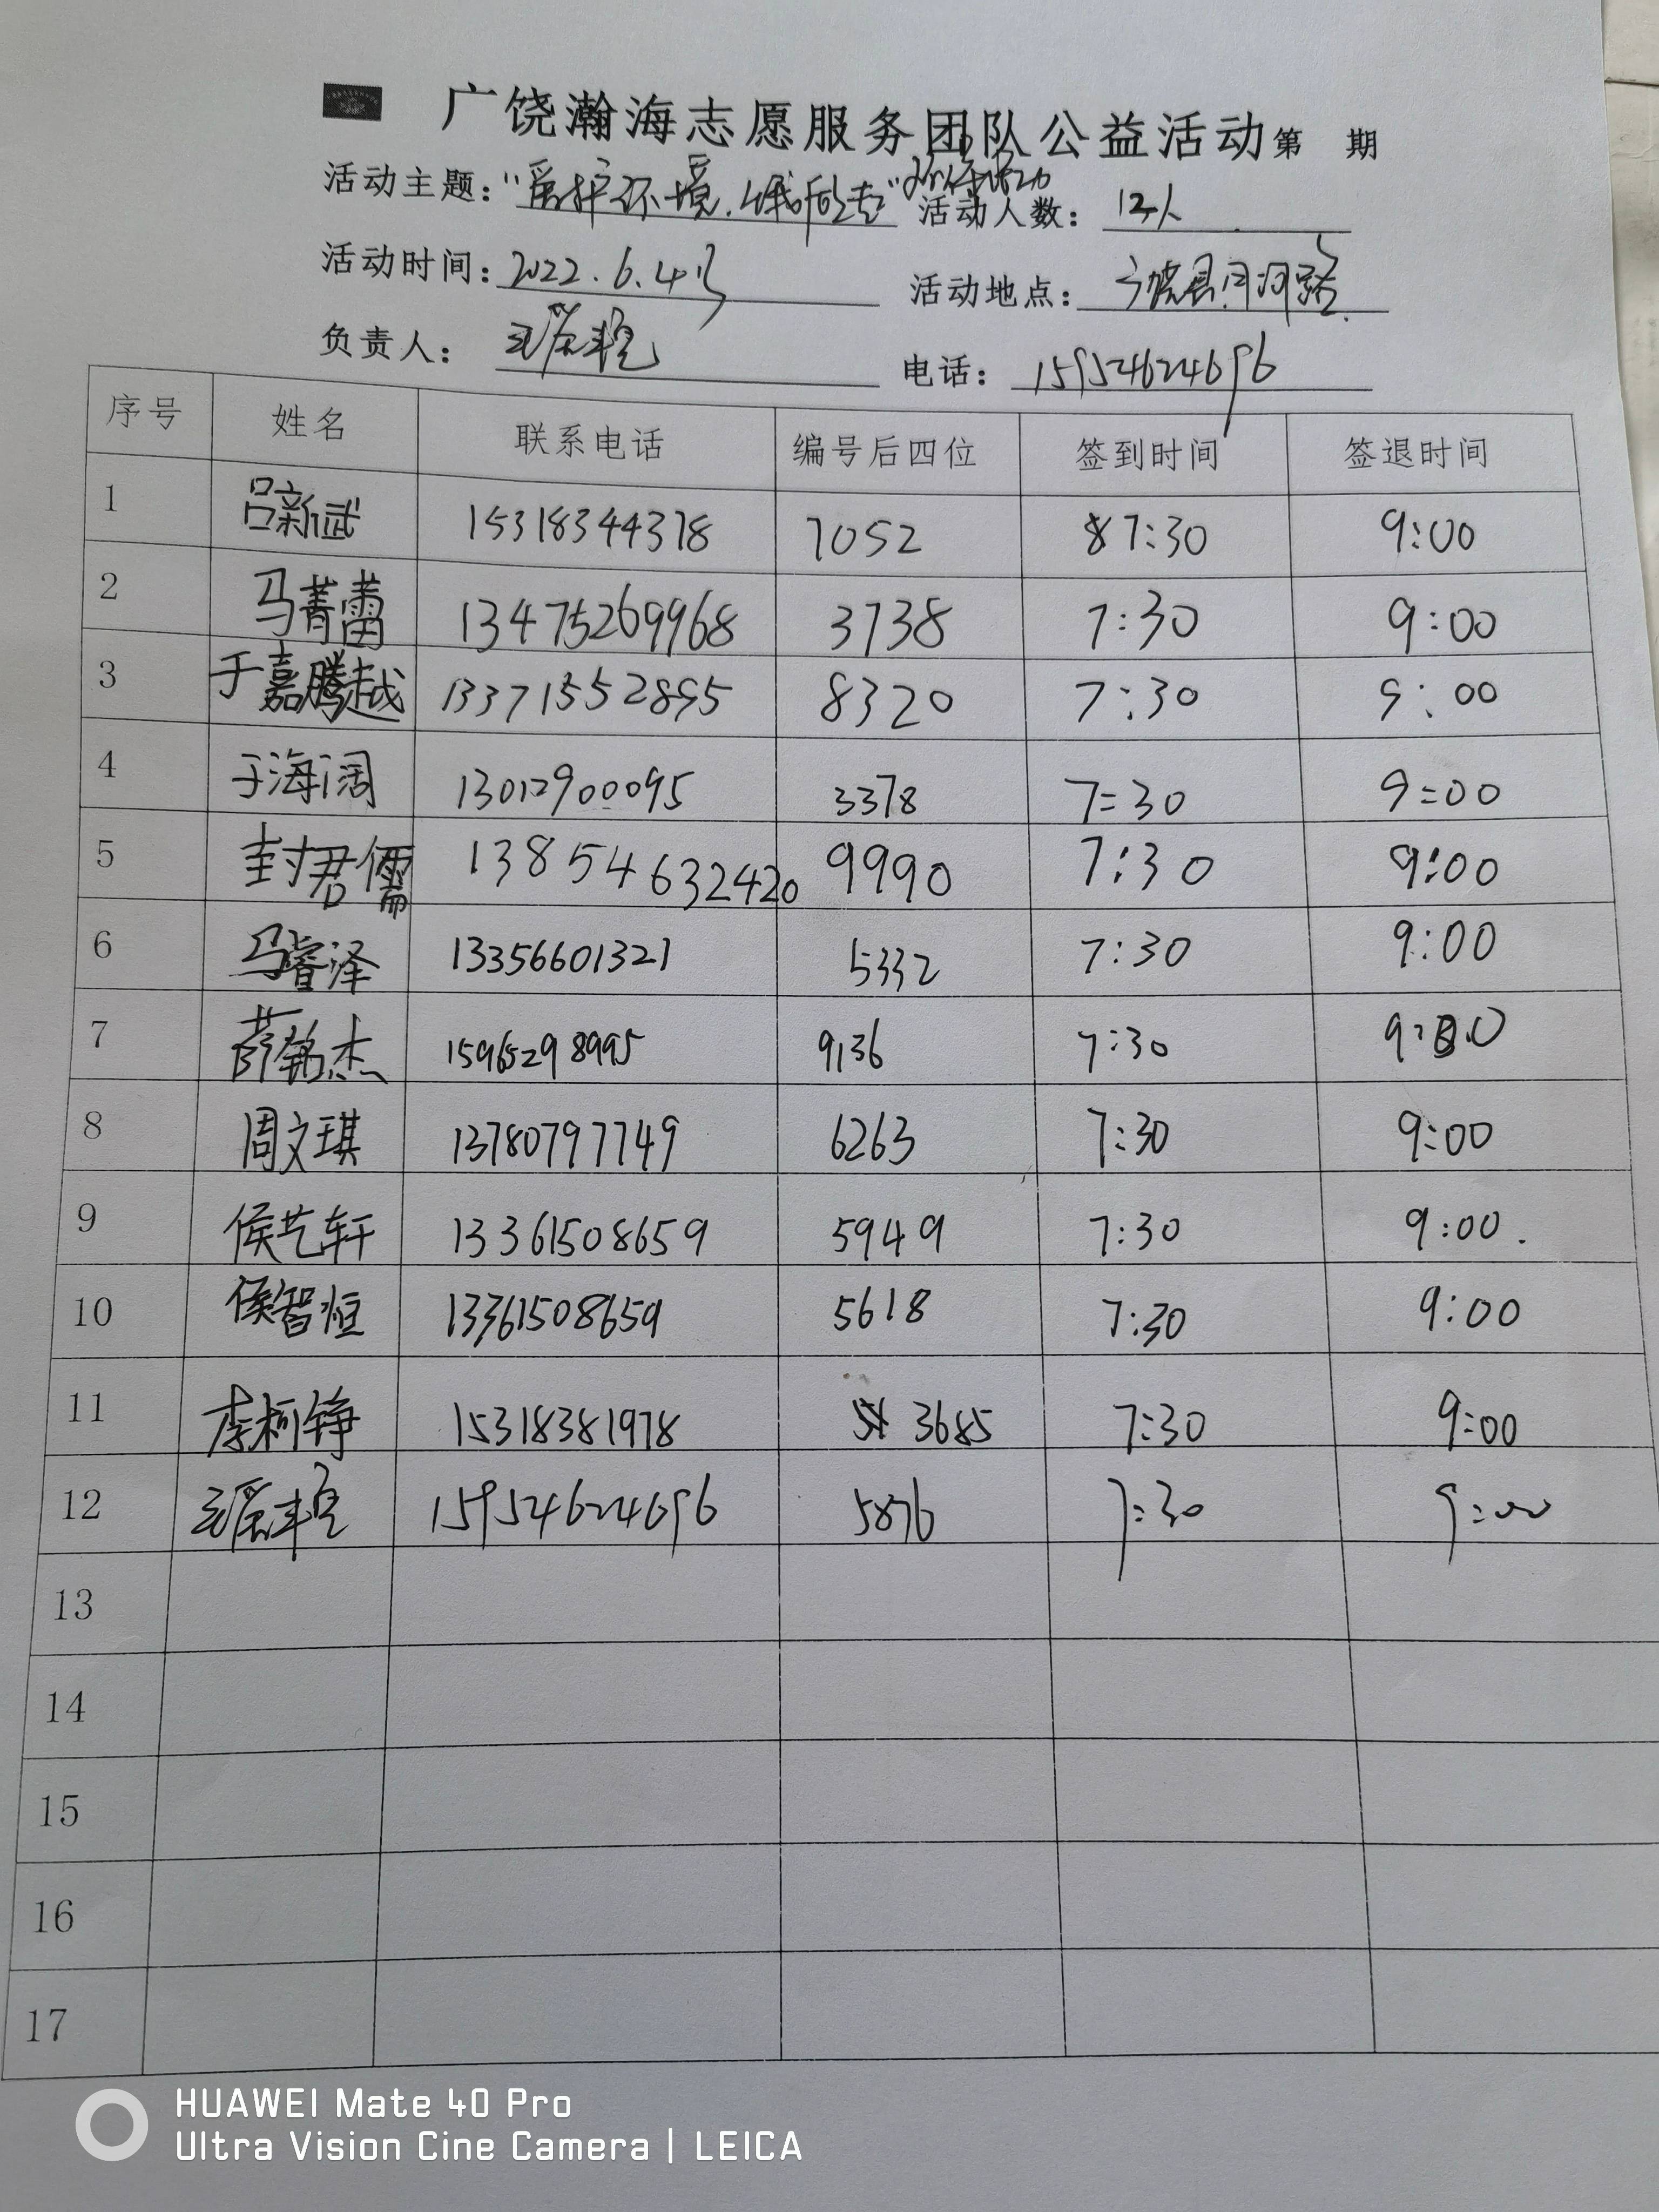 广饶瀚海志愿服务团队公益活动第 期
活动主题："爱护环境.从我做起" 活动人数：12人
活动时间：2022.6.4日 活动地点：广饶县月河路
负责人： 电话：15954624696
序号 姓名 联系电话 编号后四位 签到时间 签退时间
1 吕新斌 15318344378 7052 7:30 9:00
2 马菁蕾 13475269968 3738 7:30 9:00
3 于嘉腾越 13371552895 8320 7:30 9:00
4 于海阔 13012900095 3378 7:30 9:00
5 封君儒 13854632420 9990 7:30 9:00
6 马睿泽 13356601321 5332 7:30 9:00
7 薛铭杰 15965298995 9136 7:30 9:00
8 周文琪 13780797749 6263 7:30 9:00
9 侯艺轩 13361508659 5949 7:30 9:00.
10 侯智恒 13361508659 5618 7:30 9:00
11 李柯铮 15318381978 3685 7:30 9:00
12 15954624696 5876 7:30 9:00
13
14
15
16
17
HUAWEI Mate 40 Pro
Ultra Vision Cine Camera | LEICA